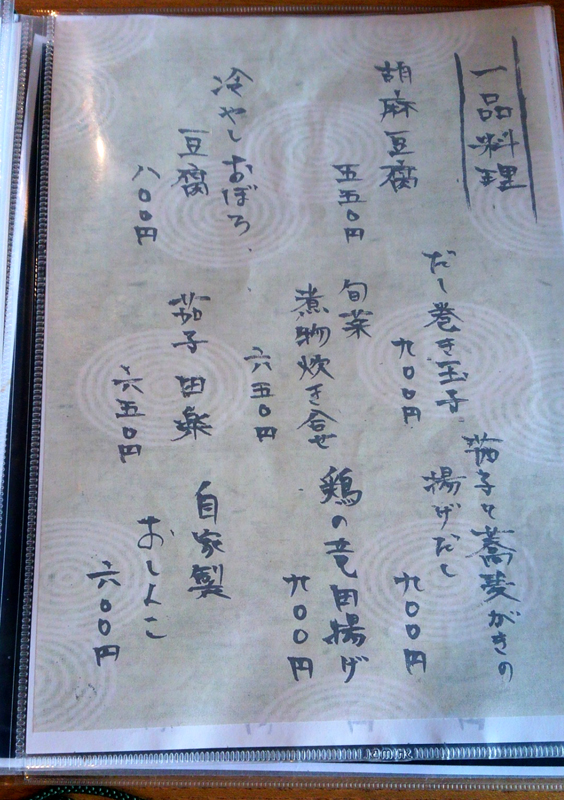 一品料理
胡麻豆腐
五五〇円
冷やしおぼろ
豆腐
八〇〇円
だし巻き玉子
九〇〇円
旬菜
煮物炊き合せ
六五〇円
茄子田楽
六五〇円
茄子と蕎麦がきの
揚げだし
九〇〇円
鶏の竜田揚げ
九〇〇円
自家製
おしんこ
六〇〇円